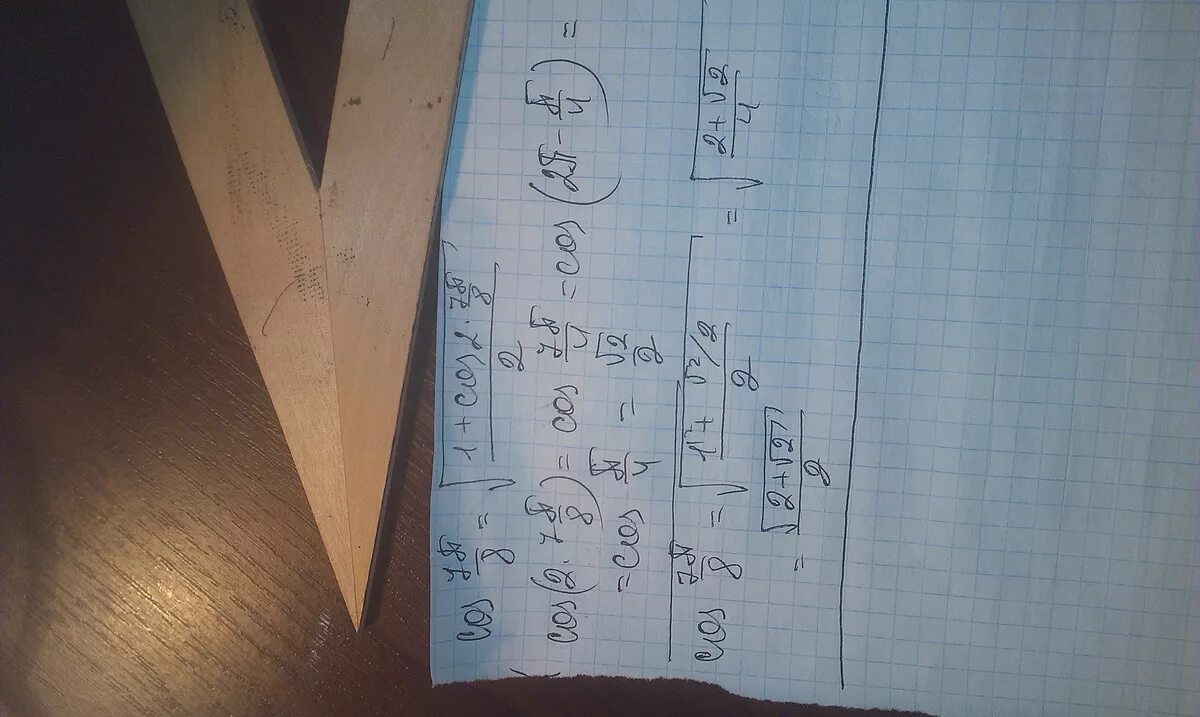 cos 7π/8 = √((1 + cos 2 · 7π/8)/2)
cos(2 · 7π/8) = cos 7π/4 = cos(2π − π/4) =
= cos π/4 = √2/2
cos 7π/8 = √((1 + √2/2)/2) = √((2+√2)/4)
= √(2+√2)/2